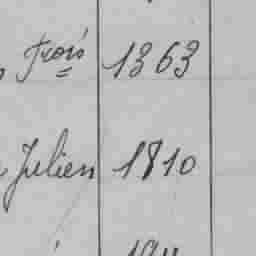 Frois 1363
Julien 1810